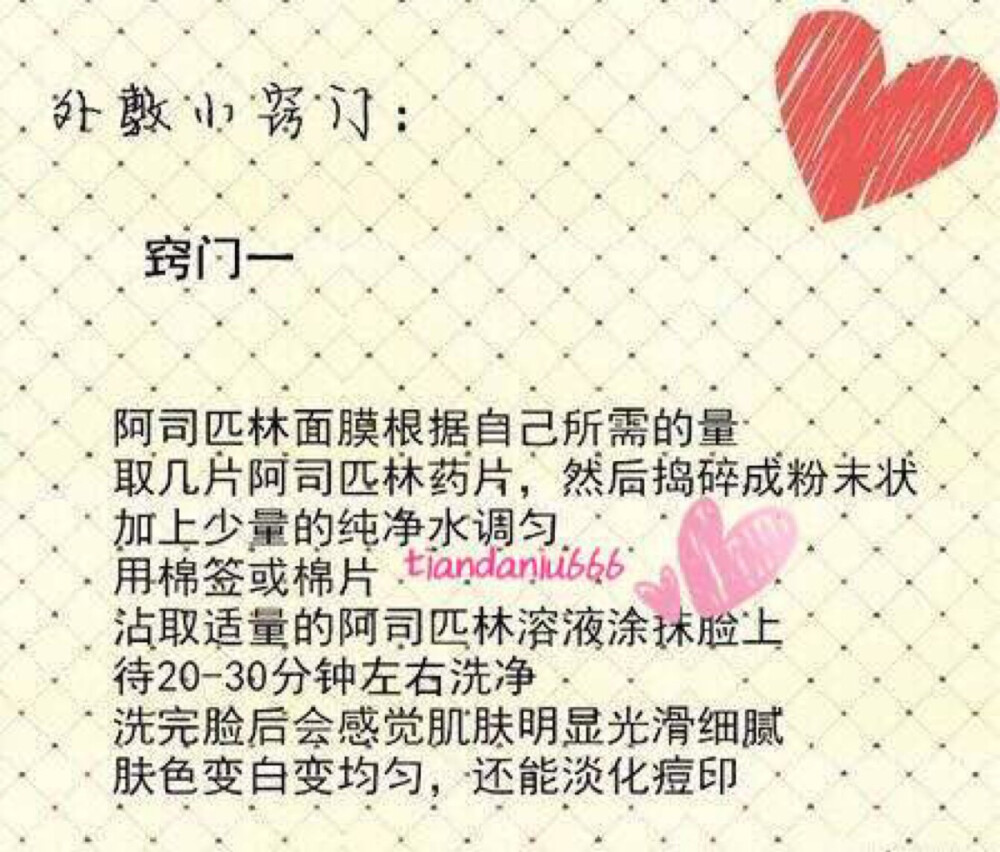 外敷小窍门：
窍门一
阿司匹林面膜根据自己所需的量
取几片阿司匹林药片，然后捣碎成粉末状
加上少量的纯净水调匀
用棉签或棉片
tiandaniu666
沾取适量的阿司匹林溶液涂抹脸上
待20-30分钟左右洗净
洗完脸后会感觉肌肤明显光滑细腻
肤色变白变均匀，还能淡化痘印